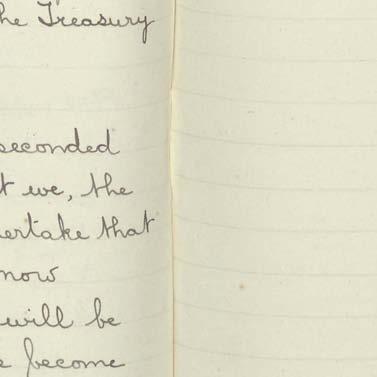 he Treasury
seconded
t we, the
ertake that
now
will be
e become